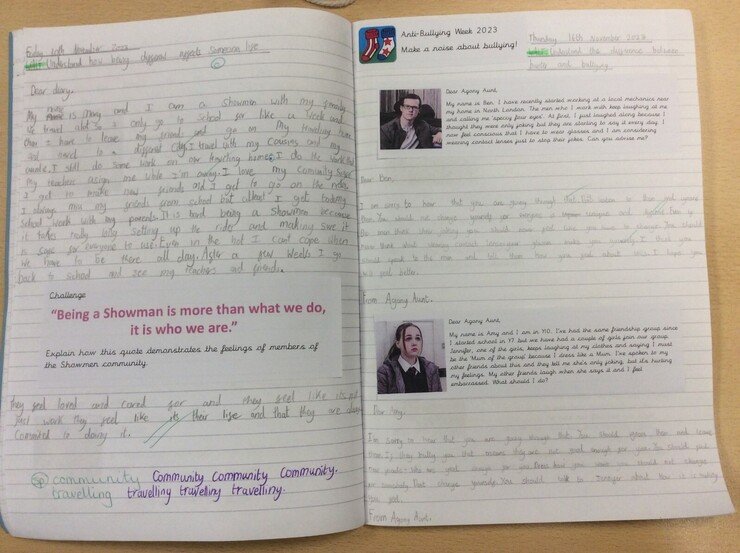 Friday 10th November 2023
Understand how being different affects someone's life
Dear diary,
My name is Mary and I am a Showman with my family
We travel alot so I only go to school for like a week and
than I have to leave my friend and go on My travelling home
and travel to a different City. I travel with my cousins and my
auntie. I still do some work on our travelling home. I do the work that
My teachers assign me while I'm away. I love my community
I get to make new friends and I get to go on the rides.
I always miss my friends from school but atleast I get
School work with my parents. It is hard being a Showman because
it takes really long setting up the rides and making sure it
is safe for everyone to use. Even in the hot I can't cope when
We have to be there all day. After a few weeks I go
back to school and see my teachers and friends.
Challenge
"Being a Showman is more than what we do,
it is who we are."
Explain how this quote demonstrates the feelings of members of
the Showmen community.
they feel loved and cared for and they feel like its not
just work they feel like its their life and that they are
Commited to doing it.
Sp community Community Community Community.
travelling travelling travelling travelling.
Anti-Bullying Week 2023
Make a noise about bullying!
Thursday 16th November 2023
Understand the difference between
banter and bullying
Dear Agony Aunt,
My name is Ben. I have recently started working at a local mechanics near
my home in North London. The men who I work with keep laughing at me
and calling me 'specky four eyes'. At first, I just laughed along because I
thought they were only joking but they are starting to say it every day. I
now feel conscious that I have to wear glasses and I am considering
wearing contact lenses just to stop their jokes. Can you advise me?
Dear Ben,
I am sorry to hear that you are going through that. Dont listen to them and ignore
them. You should not change yourself for everyone is unique and
men think their joking you should never feel like you have to change. You should
think about wearing contact lenses or glasses make you yourself. I think you
should speak to the men and tell them how you feel about this. I hope you
will feel better.
From Agony Aunt.
Dear Agony Aunt,
My name is Amy and I am in Y10. I've had the same friendship group since
I started school in Y7 but we have had a couple of girls join our group.
Jennifer, one of the girls, keeps laughing at my clothes and saying I must
be the 'Mum of the group' because I dress like a Mum. I've spoken to my
other friends about this and they tell me she's only joking, but it's hurting
my feelings. My other friends laugh when she says it and I feel
embarrassed. What should I do?
Dear Amy,
I'm sorry to hear that you are going through that. You should ignore them and leave
them. If they bully you that means they are not good enough for you. You should find
new people who are good enough for you. Dress how you want you should not change
for somebody. Dont change yourself. You should talk to Jennifer about how
you feel.
From Agony Aunt.